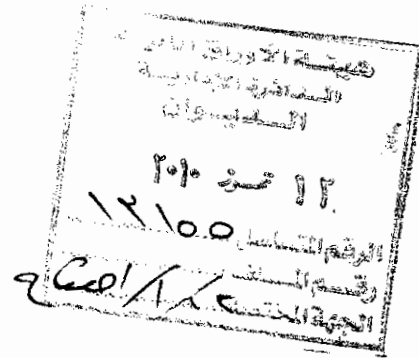 هيئة الأوراق المالية
الدائرة الإدارية
الديوان
١٢ تموز ٢٠١٠
الرقم المتسلسل ١٢١٥٥
رقم الملف
الجهة المختصة